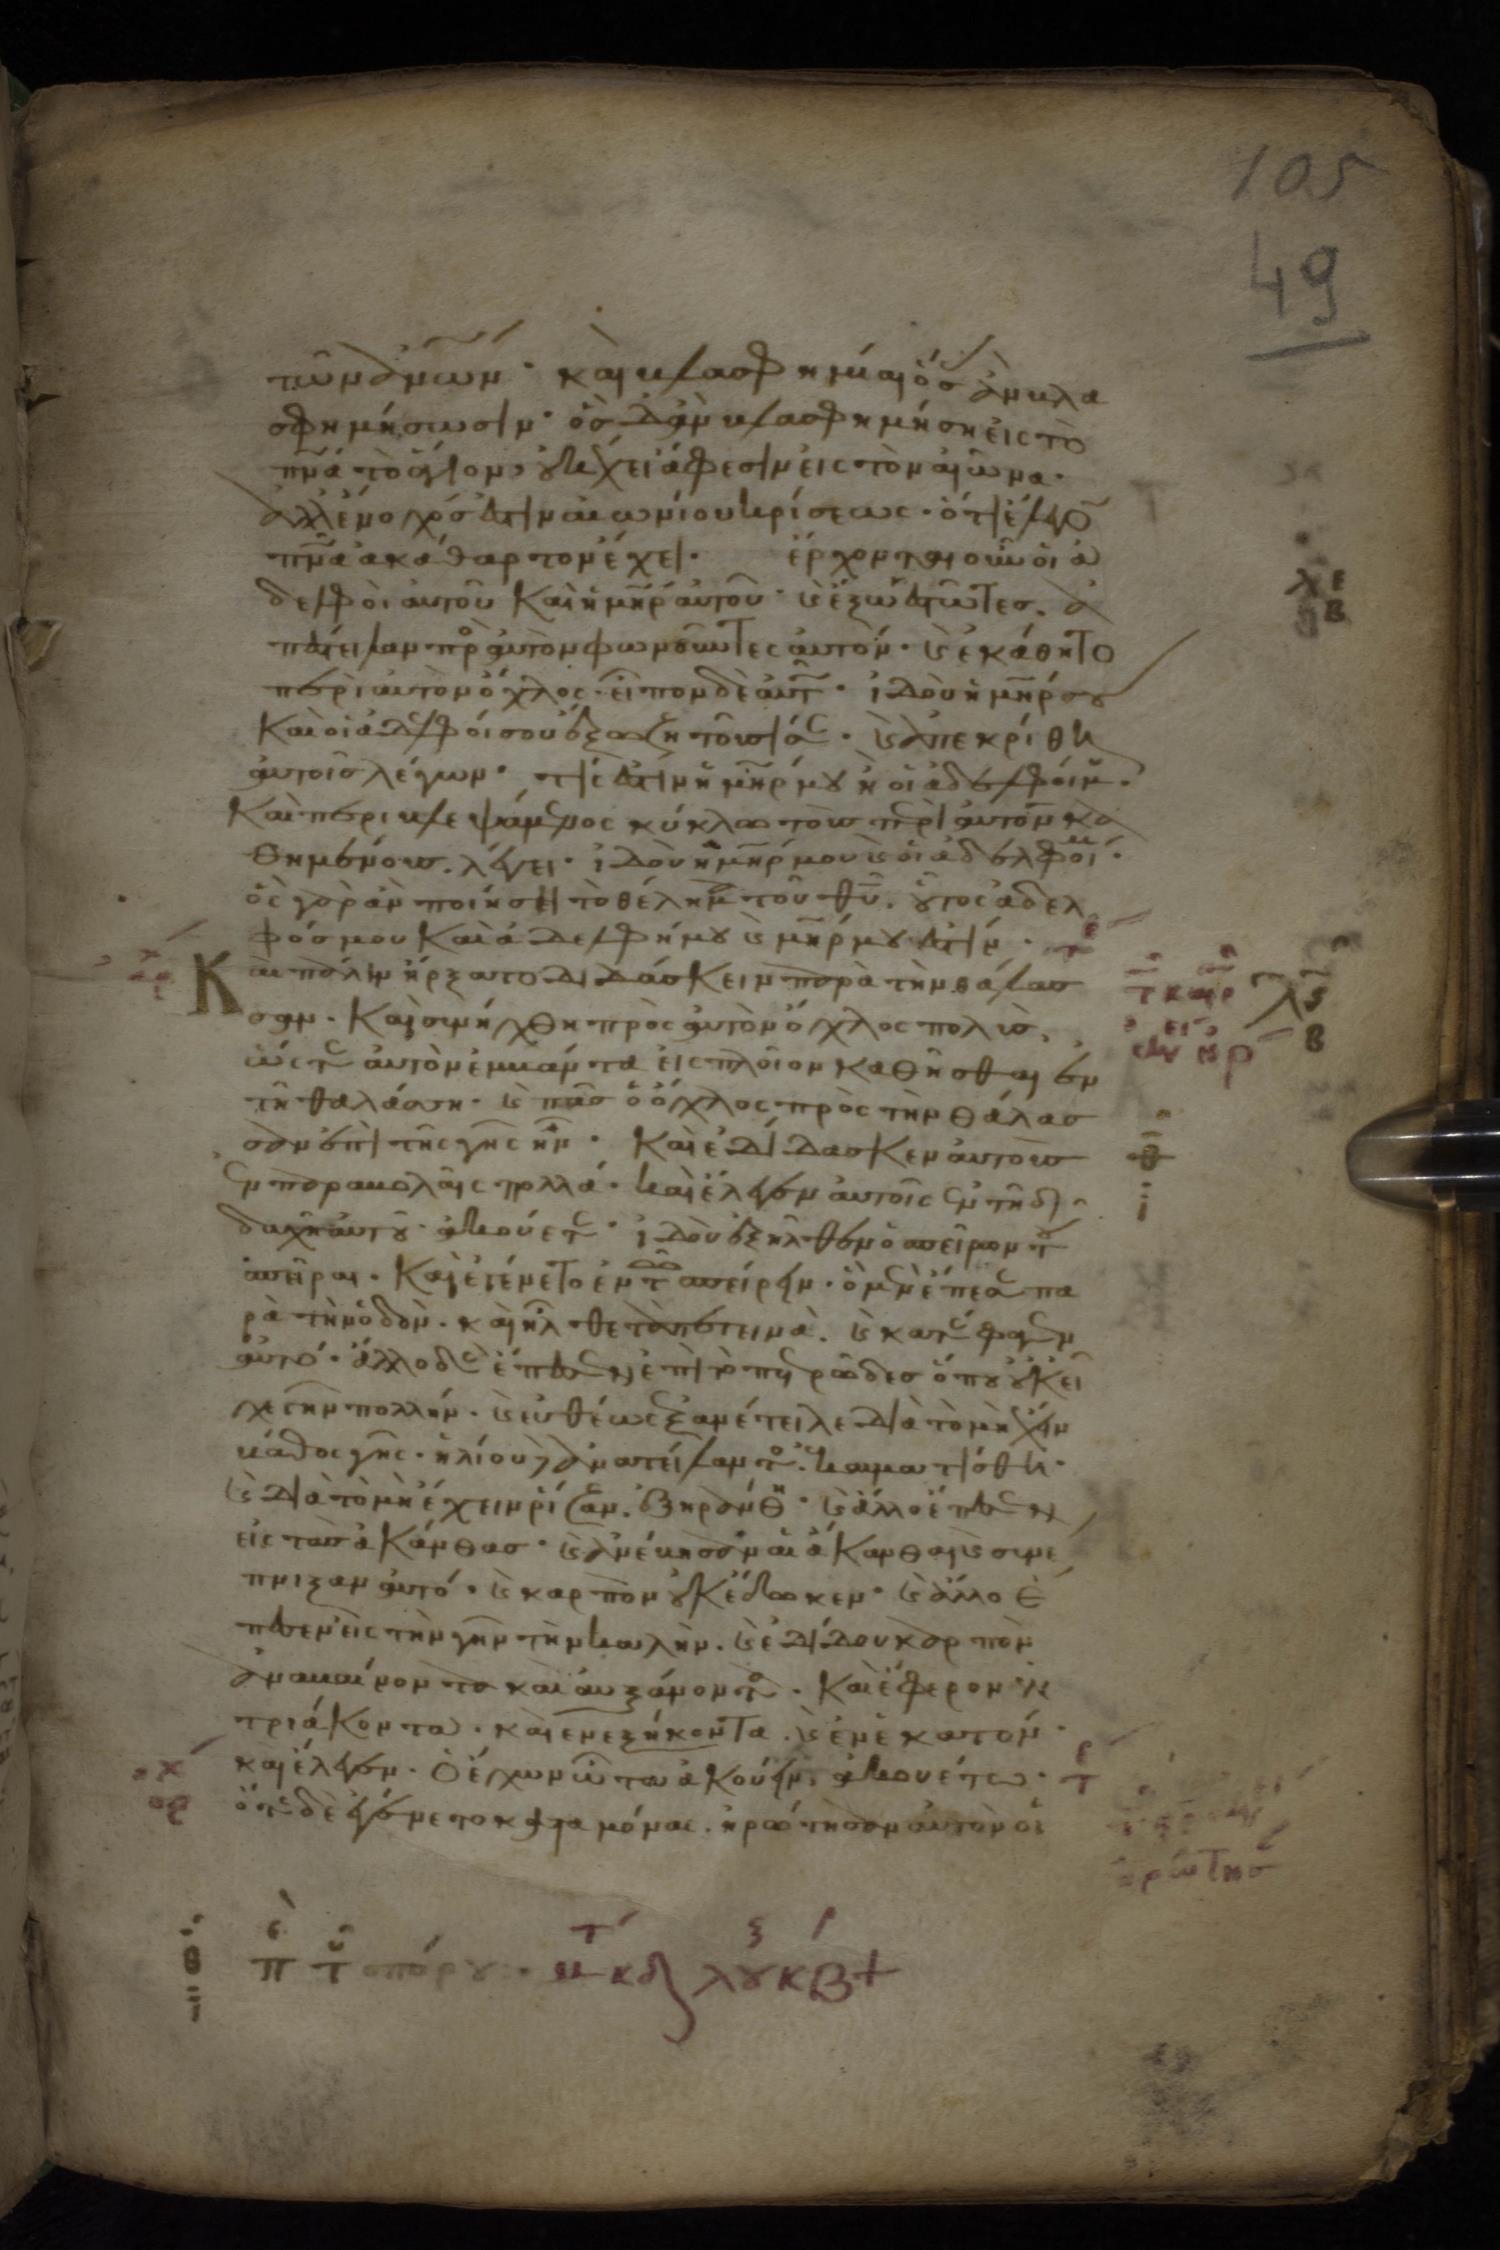 105
49
τῶν ἀν̅ω̅ν̅· καὶ βλασφημίαι ὅσ ἂν βλα
σφημήσωσιν· ὃσ δ' ἂν βλασφημήσῃ εἰς τὸ
πν̅α τὸ ἅγιον, οὐκ ἔχει ἄφεσιν εἰς τὸν αἰῶνα·
ἀλλ' ἔνοχόσ ἐστιν αἰωνίου κρίσεως· ὅτι ἔλεγον
πν̅α ἀκάθαρτον ἔχει· ἔρχονται οὖν οἱ ἀ
δελφοὶ αὐτοῦ καὶ ἡ μη̅ρ αὐτοῦ· καὶ ἔξω ἑστῶτεσ. ἀ
πέστειλαν πρὸσ αὐτὸν φωνοῦντες αὐτόν· καὶ ἐκάθητο
περὶ αὐτὸν ὄχλος· εἶπον δὲ αὐτῷ· ἰδοὺ ἡ μη̅ρ σου
καὶ οἱ ἀδελφοί σου ἔξω ζητοῦσί σε· καὶ ἀπεκρίθη
αὐτοῖσ λέγων· τίσ ἐστιν ἡ μη̅ρ μου ἢ οἱ ἀδελφοί μου·
Καὶ περιβλεψάμενος κύκλω τοὺσ περὶ αὐτὸν κα
θημένουσ. λέγει· ἰδοὺ ἡ μη̅ρ μου καὶ οἱ ἀδελφοί μου·
ὃς γὰρ ἂν ποιήσῃ τὸ θέλημα τοῦ θ̅υ̅. οὗτος ἀδελ
φόσ μου καὶ ἀδελφή μου καὶ μη̅ρ μου ἐστίν·
Καὶ πάλιν ἤρξατο διδάσκειν παρὰ τὴν θάλασ
σαν· Καὶ συνήχθη πρὸς αὐτὸν ὄχλος πολύσ,
ὥστε αὐτὸν ἐμβάντα εἰς πλοῖον καθῆσθαι ἐν
τῇ θαλάσσῃ· καὶ πᾶσ ὁ ὄχλος πρὸς τὴν θάλασ
σαν ἐπὶ τῆς γῆς ἦν· Καὶ ἐδίδασκεν αὐτοὺσ
ἐν παραβολαῖς πολλά· καὶ ἔλεγεν αὐτοῖς ἐν τῇ δι
δαχῇ αὐτοῦ· ἀκούετε· ἰδοὺ ἐξῆλθεν ὁ σπείρων τοῦ
σπεῖραι· Καὶ ἐγένετο ἐν τῷ σπείρειν· ὃ μὲν ἔπεσε πα
ρὰ τὴν ὁδόν· καὶ ἦλθε τὰ πετεινὰ. καὶ κατέφαγεν
αὐτό· ἄλλο δὲ ἔπεσεν ἐπὶ τὸ πετρῶδεσ ὅπου οὐκ εἶ
χε γῆν πολλήν· καὶ εὐθέως ἐξανέτειλε διὰ τὸ μὴ ἔχειν
βάθος γῆς· ἡλίου δὲ ἀνατείλαντος ἐκαυματίσθη·
καὶ διὰ τὸ μὴ ἔχειν ῥίζαν. ἐξηράνθη· καὶ ἄλλο ἔπεσεν
εἰς τὰσ ἀκάνθασ· καὶ ἀνέβησαν αἱ ἄκανθαι καὶ συνέ
πνιξαν αὐτό· καὶ καρπὸν οὐκ ἔδωκεν· καὶ ἄλλο ἔ
πεσεν εἰς τὴν γῆν τὴν καλὴν. καὶ ἐδίδου καρπὸν
ἀναβαίνοντα καὶ αὐξάνοντα· Καὶ ἔφερον ἓν
τριάκοντα· καὶ ἐν ἑξήκοντα. καὶ ἐν ἑκατόν·
καὶ ἔλεγεν· Ὁ ἔχων ὦτα ἀκούειν, ἀκουέτω·
ὅτε δὲ ἐγένετο καταμόνας. ἠρώτησαν αὐτὸν οἱ
λε
β
λϛ
β
τ καιρ
θ
π τ σπόρου· μ κδ λουκ β +